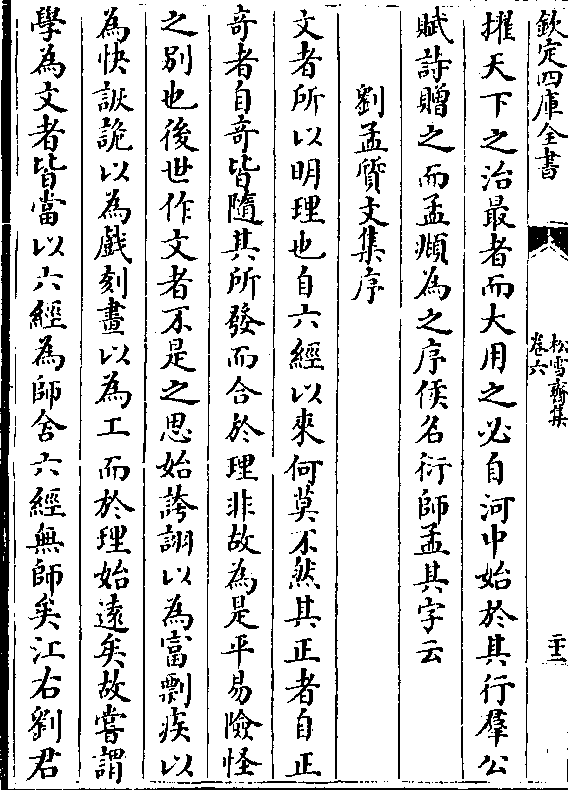 欽定四庫全書
松雪齋集
卷六
二十二
擢天下之治最者而大用之必自河中始於其行羣公
賦詩贈之而孟頫為之序侯名衍師孟其字云
劉孟質文集序
文者所以明理也自六經以來何莫不然其正者自正
奇者自奇皆隨其所發而合於理非故為是平易險怪
之別也後世作文者不是之思始誇詡以為富剽疾以
為快詼詭以為戲刻畫以為工而於理始遠矣故嘗謂
學為文者皆當以六經為師舍六經無師矣江右劉君